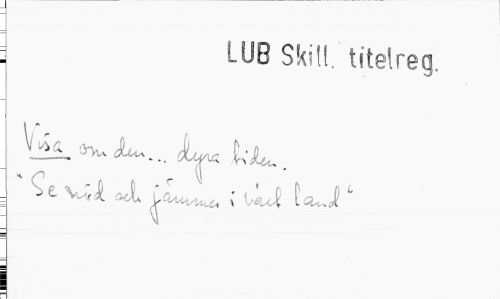 LUB Skill. titelreg.
Visa om den... dyra tiden.
"Se nöd och jämmer i vårt land"